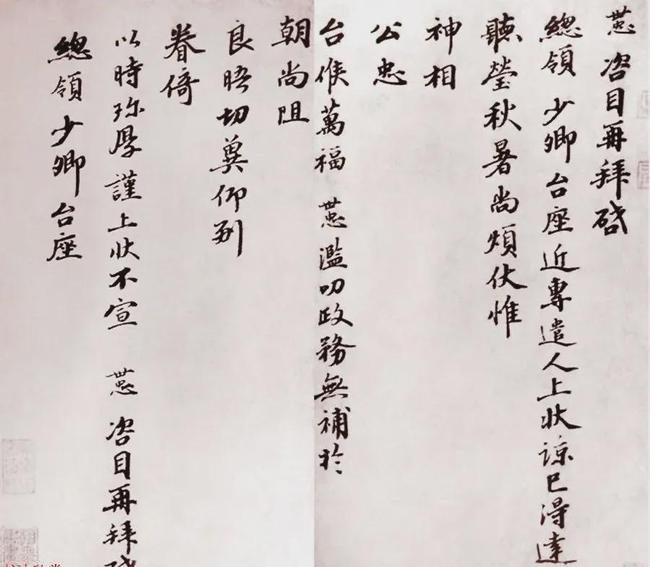 咨目再拜啓
總領少卿台座近專遣人上狀諒已得達
聽瑩秋暑尚煩伏惟
神相
公忠
台候萬福 濫叨政務無補於
朝尚阻
良晤切冀仰副
眷倚
以時珎厚謹上狀不宣 咨目再拜啓
總領少卿台座